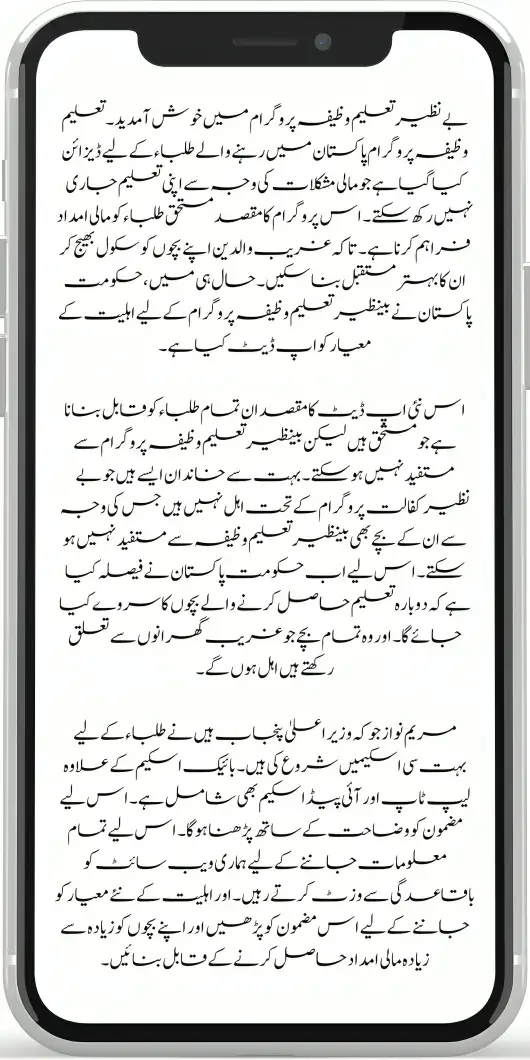 بے نظیر تعلیم وظیفہ پروگرام میں خوش آمدید۔ تعلیم
وظیفہ پروگرام پاکستان میں رہنے والے طلباء کے لیے ڈیزائن
کیا گیا ہے جو مالی مشکلات کی وجہ سے اپنی تعلیم جاری
نہیں رکھ سکتے۔ اس پروگرام کا مقصد مستحق طلباء کو مالی امداد
فراہم کرنا ہے۔ تاکہ غریب والدین اپنے بچوں کو سکول بھیج کر
ان کا بہتر مستقبل بنا سکیں۔ حال ہی میں، حکومت
پاکستان نے بینظیر تعلیم وظیفہ پروگرام کے لیے اہلیت کے
معیار کو اپ ڈیٹ کیا ہے۔
اس نئی اپ ڈیٹ کا مقصد ان تمام طلباء کو قابل بنانا
ہے جو مستحق ہیں لیکن بینظیر تعلیم وظیفہ پروگرام سے
مستفید نہیں ہو سکتے۔ بہت سے خاندان ایسے ہیں جو بے
نظیر کفالت پروگرام کے تحت اہل نہیں ہیں جس کی وجہ
سے ان کے بچے بھی بینظیر تعلیم وظیفہ سے مستفید نہیں ہو
سکتے۔ اس لیے اب حکومت پاکستان نے فیصلہ کیا
ہے کہ دوبارہ تعلیم حاصل کرنے والے بچوں کا سروے کیا
جائے گا۔ اور وہ تمام بچے جو غریب گھرانوں سے تعلق
رکھتے ہیں اہل ہوں گے۔
مریم نواز جو کہ وزیر اعلیٰ پنجاب ہیں نے طلباء کے لیے
بہت سی اسکیمیں شروع کی ہیں۔ بائیک اسکیم کے علاوہ
لیپ ٹاپ اور آئی پیڈ اسکیم بھی شامل ہے۔ اس لیے
مضمون کو وضاحت کے ساتھ پڑھنا ہوگا۔ اس لیے تمام
معلومات جاننے کے لیے ہماری ویب سائٹ کو
باقاعدگی سے وزٹ کرتے رہیں۔ اور اہلیت کے نئے معیار کو
جاننے کے لیے اس مضمون کو پڑھیں اور اپنے بچوں کو زیادہ سے
زیادہ مالی امداد حاصل کرنے کے قابل بنائیں۔